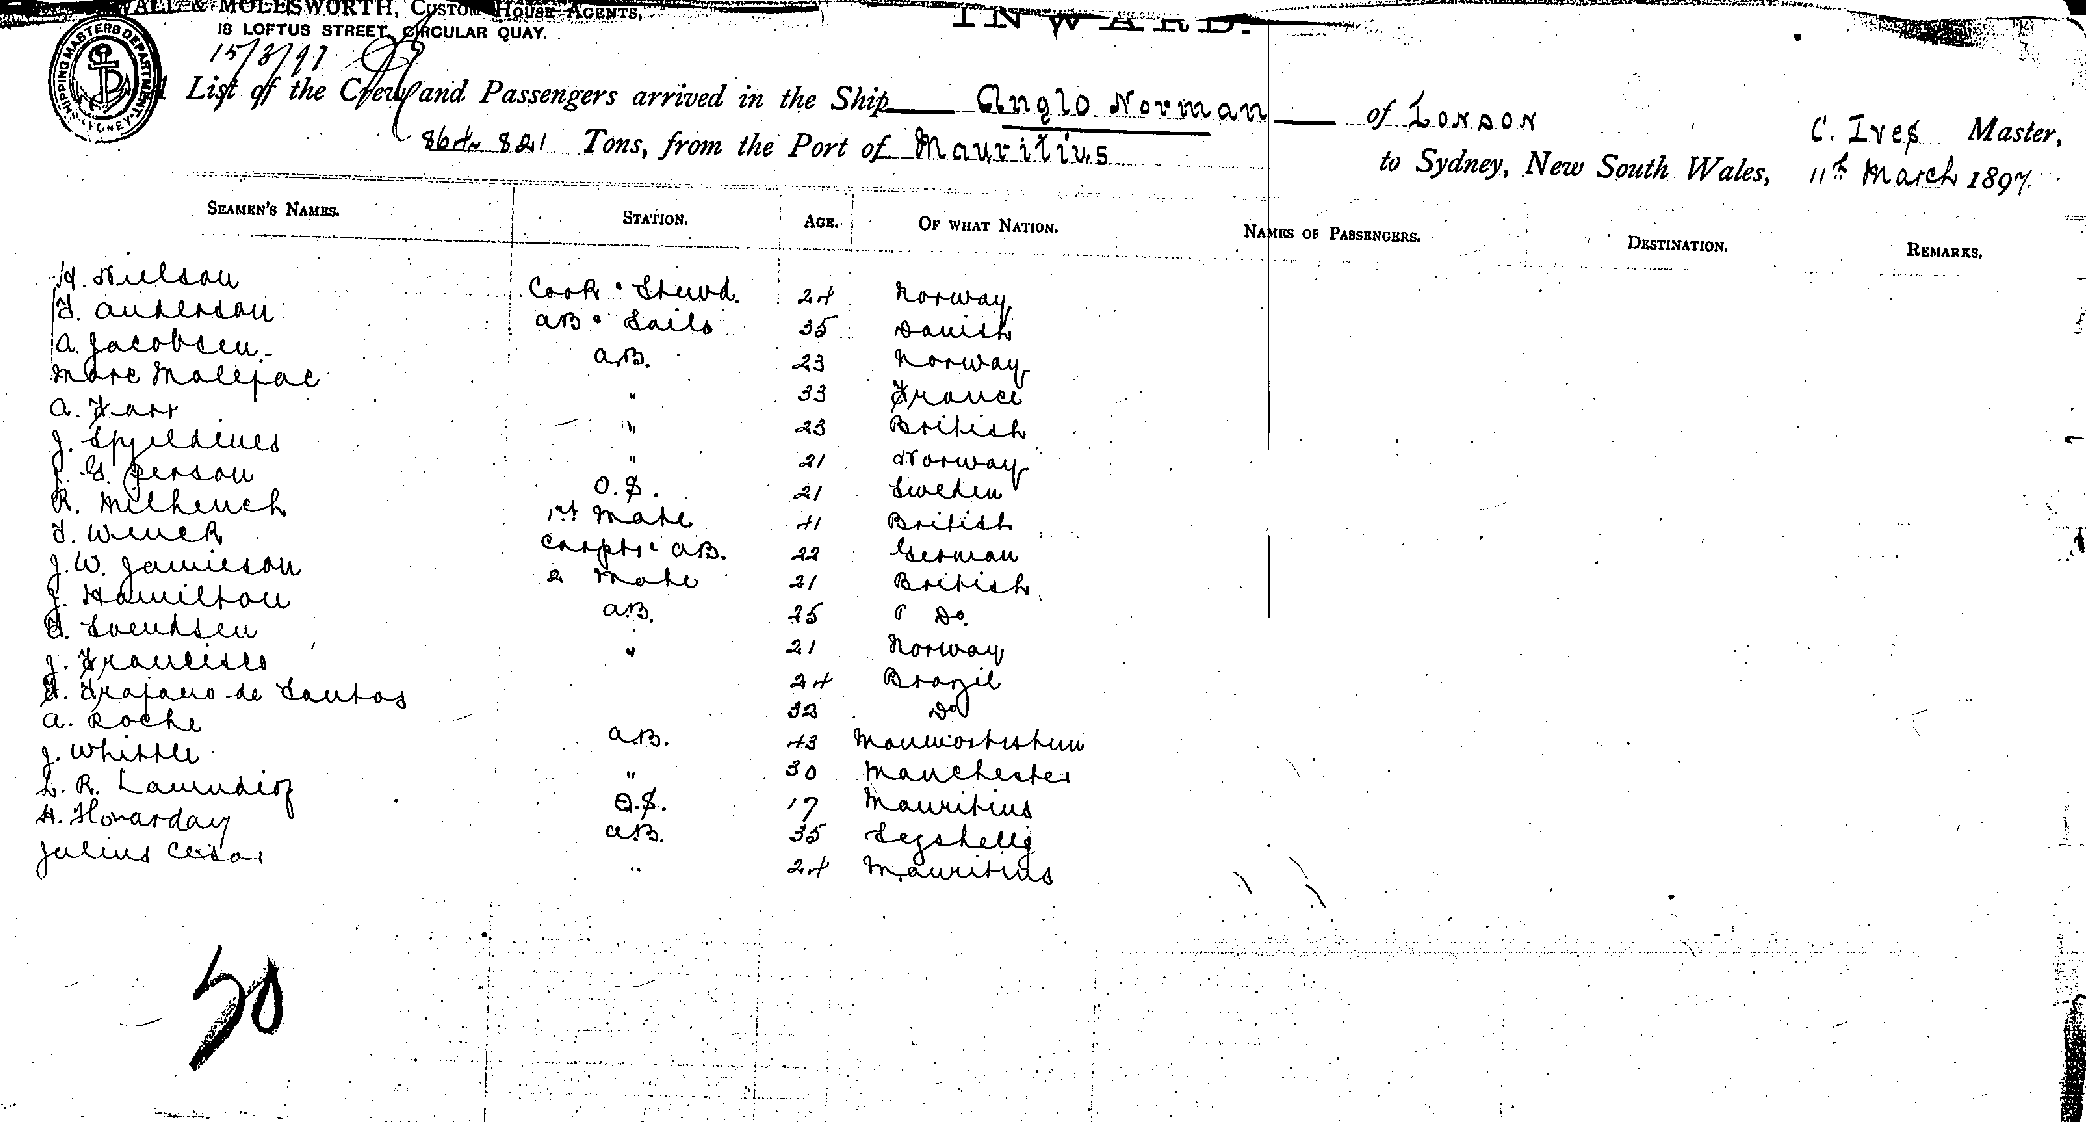 WALL & MOLESWORTH, CUSTOM HOUSE AGENTS,
18 LOFTUS STREET, CIRCULAR QUAY.
INWARD.
15/3/97
SHIPPING MASTERS DEPARTMENT SYDNEY
A List of the Crew and Passengers arrived in the Ship Anglo Norman of London C. Ives Master,
821 Tons, from the Port of Mauritius to Sydney, New South Wales, 11th March 1897
SEAMEN'S NAMES. STATION. AGE. OF WHAT NATION. NAMES OF PASSENGERS. DESTINATION. REMARKS.
H. Nielson Cook & Stewd. 24 Norway
F. Anderson AB & Sails 35 Danish
A. Jacobsen AB. 23 Norway
Marc Malejac " 33 France
A. Farr " 23 British
J. " 21 Norway
J. G. Person O.S. 21 Sweden
R. Milhench 1st Mate 41 British
F. Wenck Carptr & AB. 22 German
J. W. Jamieson 2 Mate 21 British
J. Hamilton AB. 25 Do
Svendsen " 21 Norway
J. Francisco 24 Brazil
Trajano de Santos 32 Do
A. Roche AB. 43
J. Whittle " 30 Manchester
L. R. O.S. 17 Mauritius
H. AB. 35
Julius Cesar " 24 Mauritius
50